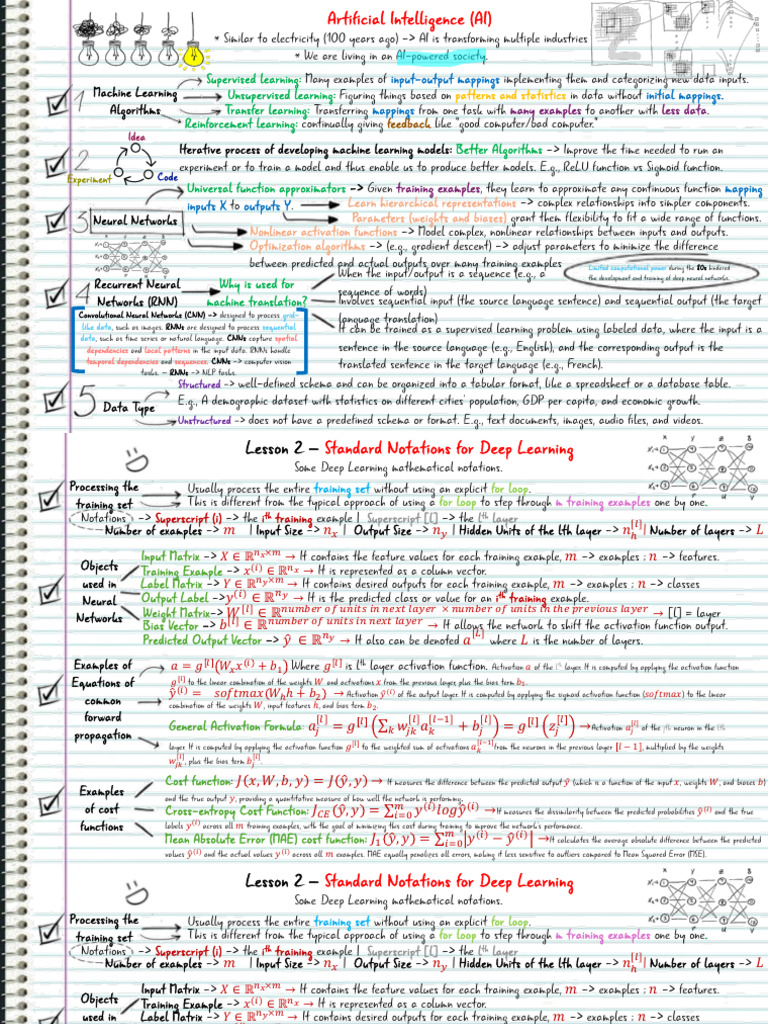 Artificial Intelligence (AI)
* Similar to electricity (100 years ago) –> AI is transforming multiple industries
* We are living in an AI-powered society.
1 Machine Learning Algorithms
Supervised learning: Many examples of input-output mappings implementing them and categorizing new data inputs.
Unsupervised learning: Figuring things based on patterns and statistics in data without initial mappings.
Transfer learning: Transferring mappings from one task with many examples to another with less data.
Reinforcement learning: continually giving feedback like "good computer/bad computer."
2
Idea
Experiment
Code
Iterative process of developing machine learning models: Better Algorithms –> Improve the time needed to run an
experiment or to train a model and thus enable us to produce better models. E.g., ReLU function vs Sigmoid function.
3 Neural Networks
Universal function approximators –> Given training examples, they learn to approximate any continuous function mapping
inputs X to outputs Y.
Learn hierarchical representations –> complex relationships into simpler components.
Parameters (weights and biases) grant them flexibility to fit a wide range of functions.
Nonlinear activation functions –> Model complex, nonlinear relationships between inputs and outputs.
Optimization algorithms –> (e.g., gradient descent) –> adjust parameters to minimize the difference
between predicted and actual outputs over many training examples
Limited computational power during the 80s hindered
the development and training of deep neural networks.
4 Recurrent Neural
Networks (RNN)
Why is used for
machine translation?
When the input/output is a sequence (e.g., a
sequence of words)
Involves sequential input (the source language sentence) and sequential output (the target
language translation)
It can be trained as a supervised learning problem using labeled data, where the input is a
sentence in the source language (e.g., English), and the corresponding output is the
translated sentence in the target language (e.g., French).
Convolutional Neural Networks (CNN) –> designed to process grid-
like data, such as images. RNNs are designed to process sequential
data, such as time series or natural language. CNNs capture spatial
dependencies and local patterns in the input data. RNNs handle
temporal dependencies and sequences. CNNs –> computer vision
tasks. – RNNs –> NLP tasks.
5 Data Type
Structured –> well-defined schema and can be organized into a tabular format, like a spreadsheet or a database table.
E.g., A demographic dataset with statistics on different cities' population, GDP per capita, and economic growth.
Unstructured –> does not have a predefined schema or format. E.g., text documents, images, audio files, and videos.
Lesson 2 – Standard Notations for Deep Learning
Some Deep Learning mathematical notations.
Processing the
training set
Usually process the entire training set without using an explicit for loop.
This is different from the typical approach of using a for loop to step through m training examples one by one.
Notations –> Superscript (i) –> the iᵗʰ training example | Superscript [l] –> the lᵗʰ layer
Number of examples –> m | Input Size –> n_x | Output Size –> n_y | Hidden Units of the lth layer –> n_h^[l] | Number of layers –> L
Objects
used in
Neural
Networks
Input Matrix –> X ∈ ℝ^(n_x×m) → It contains the feature values for each training example, m –> examples ; n –> features.
Training Example –> x^(i) ∈ ℝ^(n_x) → It is represented as a column vector.
Label Matrix –> Y ∈ ℝ^(n_y×m) → It contains desired outputs for each training example, m –> examples ; n –> classes
Output Label –> y^(i) ∈ ℝ^(n_y) → It is the predicted class or value for an iᵗʰ training example.
Weight Matrix–> W^[l] ∈ ℝ^(number of units in next layer × number of units in the previous layer) → [l] = layer
Bias Vector –> b^[l] ∈ ℝ^(number of units in next layer) → It allows the network to shift the activation function output.
Predicted Output Vector –> ŷ ∈ ℝ^(n_y) → It also can be denoted a^[L] where L is the number of layers.
Examples of
Equations of
common
forward
propagation
a = g^[l](W_x x^(i) + b_1) Where g^[l] is lᵗʰ layer activation function. Activation a of the lᵗʰ layer. It is computed by applying the activation function
g^[l] to the linear combination of the weights W and activations x from the previous layer, plus the bias term b_1.
ŷ^(i) = softmax(W_h h + b_2) → Activation ŷ^(i) of the output layer. It is computed by applying the sigmoid activation function (softmax) to the linear
combination of the weights W, input features h, and bias term b_2.
General Activation Formula: a_j^[l] = g^[l](∑_k w_jk^[l] a_k^[l−1] + b_j^[l]) = g^[l](z_j^[l]) → Activation a_j^[l] of the jᵗʰ neuron in the lᵗʰ
layer. It is computed by applying the activation function g^[l] to the weighted sum of activations a_k^[l−1] from the neurons in the previous layer [l − 1], multiplied by the weights
w_jk^[l], plus the bias term b_j^[l].
Examples
of cost
functions
Cost function: J(x, W, b, y) = J(ŷ, y) → It measures the difference between the predicted output ŷ (which is a function of the input x, weights W, and biases b)
and the true output y, providing a quantitative measure of how well the network is performing.
Cross-entropy Cost Function: J_CE(ŷ, y) = ∑_(i=0)^m y^(i) log ŷ^(i) → It measures the dissimilarity between the predicted probabilities ŷ^(i) and the true
labels y^(i) across all m training examples, with the goal of minimizing this cost during training to improve the network's performance.
Mean Absolute Error (MAE) cost function: J_1(ŷ, y) = ∑_(i=0)^m |y^(i) − ŷ^(i)| → It calculates the average absolute difference between the predicted
values ŷ^(i) and the actual values y^(i) across all m examples. MAE equally penalizes all errors, making it less sensitive to outliers compared to Mean Squared Error (MSE).
Lesson 2 – Standard Notations for Deep Learning
Some Deep Learning mathematical notations.
Processing the
training set
Usually process the entire training set without using an explicit for loop.
This is different from the typical approach of using a for loop to step through m training examples one by one.
Notations –> Superscript (i) –> the iᵗʰ training example | Superscript [l] –> the lᵗʰ layer
Number of examples –> m | Input Size –> n_x | Output Size –> n_y | Hidden Units of the lth layer –> n_h^[l] | Number of layers –> L
Objects
used in
Input Matrix –> X ∈ ℝ^(n_x×m) → It contains the feature values for each training example, m –> examples ; n –> features.
Training Example –> x^(i) ∈ ℝ^(n_x) → It is represented as a column vector.
Label Matrix –> Y ∈ ℝ^(n_y×m) → It contains desired outputs for each training example, m –> examples ; n –> classes